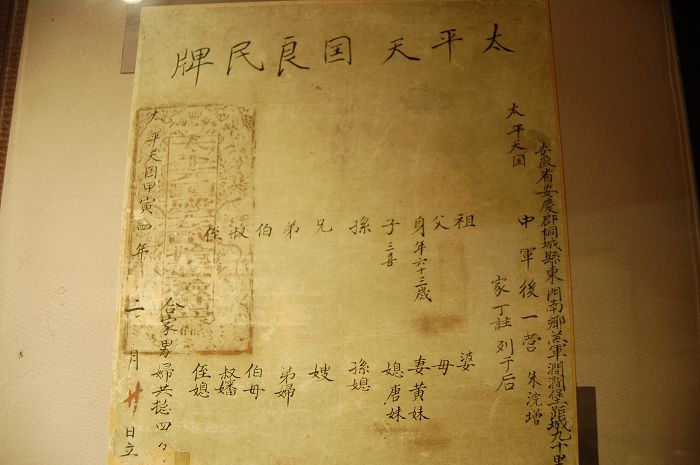 太平天囯良民牌
安徽省安慶郡桐城縣東門南鄉 軍澗澗堡距城九十里
太平天囯
中軍後一營 朱浣增
家丁註列于后
祖 婆
父 母
身年六十三歲 妻黃妹
子三喜 媳唐妹
孫 孫媳
兄 嫂
弟 弟婦
伯 伯母
叔 叔嬸
侄 侄媳
合家男婦共捴四口
太平天囯甲寅四年 二月廿日立